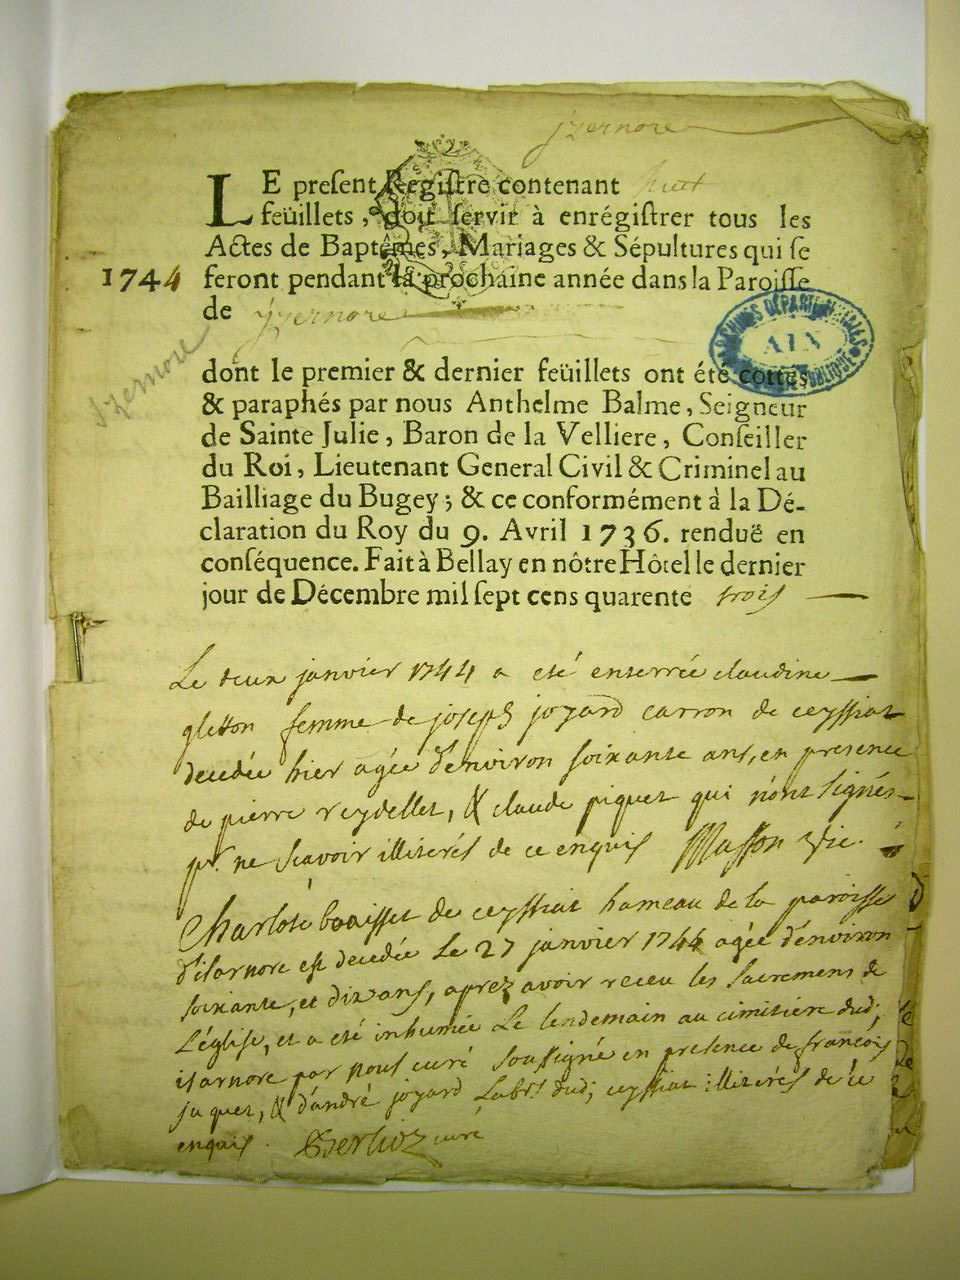 jzernore
LE present Registre contenant huit
feüillets, doit servir à enrégistrer tous les
Actes de Baptêmes, Mariages & Sépultures qui se
1744 feront pendant la prochaine année dans la Paroisse
de jzernore
Izernore
ARCHIVES DÉPARTEMENTALES
AIN
dont le premier & dernier feüillets ont été cottés
& paraphés par nous Anthelme Balme, Seigneur
de Sainte Julie, Baron de la Velliere, Conseiller
du Roi, Lieutenant General Civil & Criminel au
Bailliage du Bugey; & ce conformément à la Dé-
claration du Roy du 9. Avril 1736. renduë en
conséquence. Fait à Bellay en nôtre Hôtel le dernier
jour de Décembre mil sept cens quarente trois
Le deux janvier 1744 a eté enterrée claudine
gletton femme de joseph joyard carron de ceyssiat
decedée hier agée d'environ soixante ans, en presence
de pierre reydellet, & claude piquet qui n'ont signés
pr. ne scavoir illiterés de ce enquis Masson vic.
Charlote bouisset de ceyssiat hameau de la paroisse
d'isarnore est decedée le 27 janvier 1744 agée d'environ
soixante, et dix ans, aprez avoir receu les sacremens de
l'église, et a eté inhumée le lendemain au cimitiére dud;
isarnore par nous curé soussigné en presence de francois
jaquet, & d'andré joyard labrs dud; ceyssiat illiterés de ce
enquis. Berlioz curé